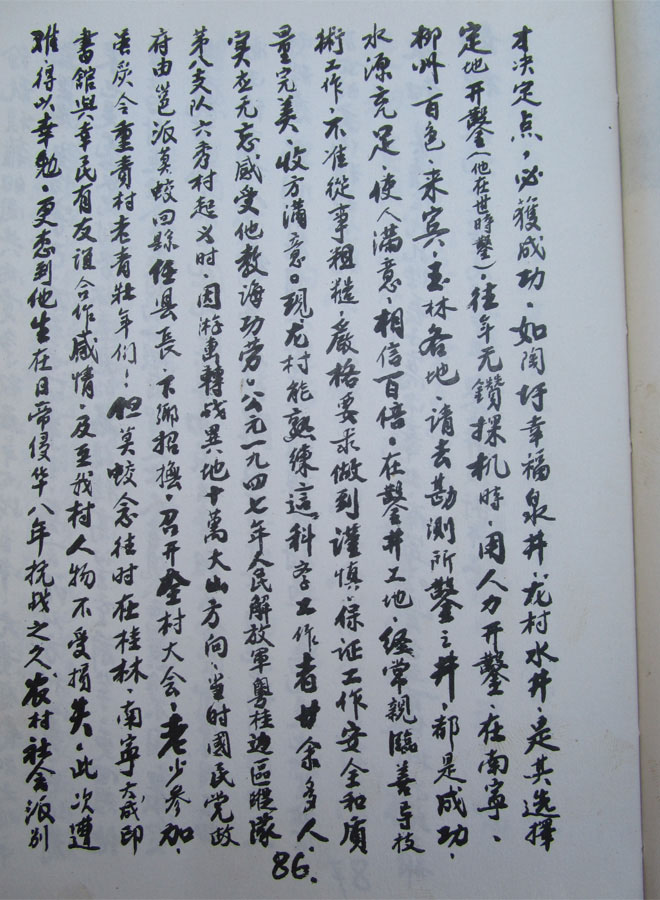 才决定点，必獲成功．如陶圩幸福泉井，龙村水井，是其选擇
定地开鑿（他在世時鑿）．往年无鑽探机時，用人力开鑿．在南寧、
柳州、百色、来宾、玉林各地．請去勘测所鑿之井，都是成功．
水源充足，使人滿意，相信百倍。在鑿井工地，經常親臨善导技
術工作，不准從事粗糙，嚴格要求做到謹慎，保证工作安全和质
量完美，收方滿意。現龙村能熟練這科学工作者廿余多人．
实在无忘感受他教诲功劳。公元一九四七年人民解放軍粵桂边區縱隊
第八支队六秀村起义时，因游击轉战異地十萬大山方向，当时國民党政
府由邕派莫蛟回縣任县長，下鄉招撫，召开全村大会，老少参加．
苦炭令重責村老青壮年们！但莫蛟念往时在桂林、南寧大成印
書館與幸民有友谊合作感情，反至我村人物不受損失，此次遭
难，得以幸勉．更悉到他生在日帝侵华八年抗战之久，农村社会派别
86.